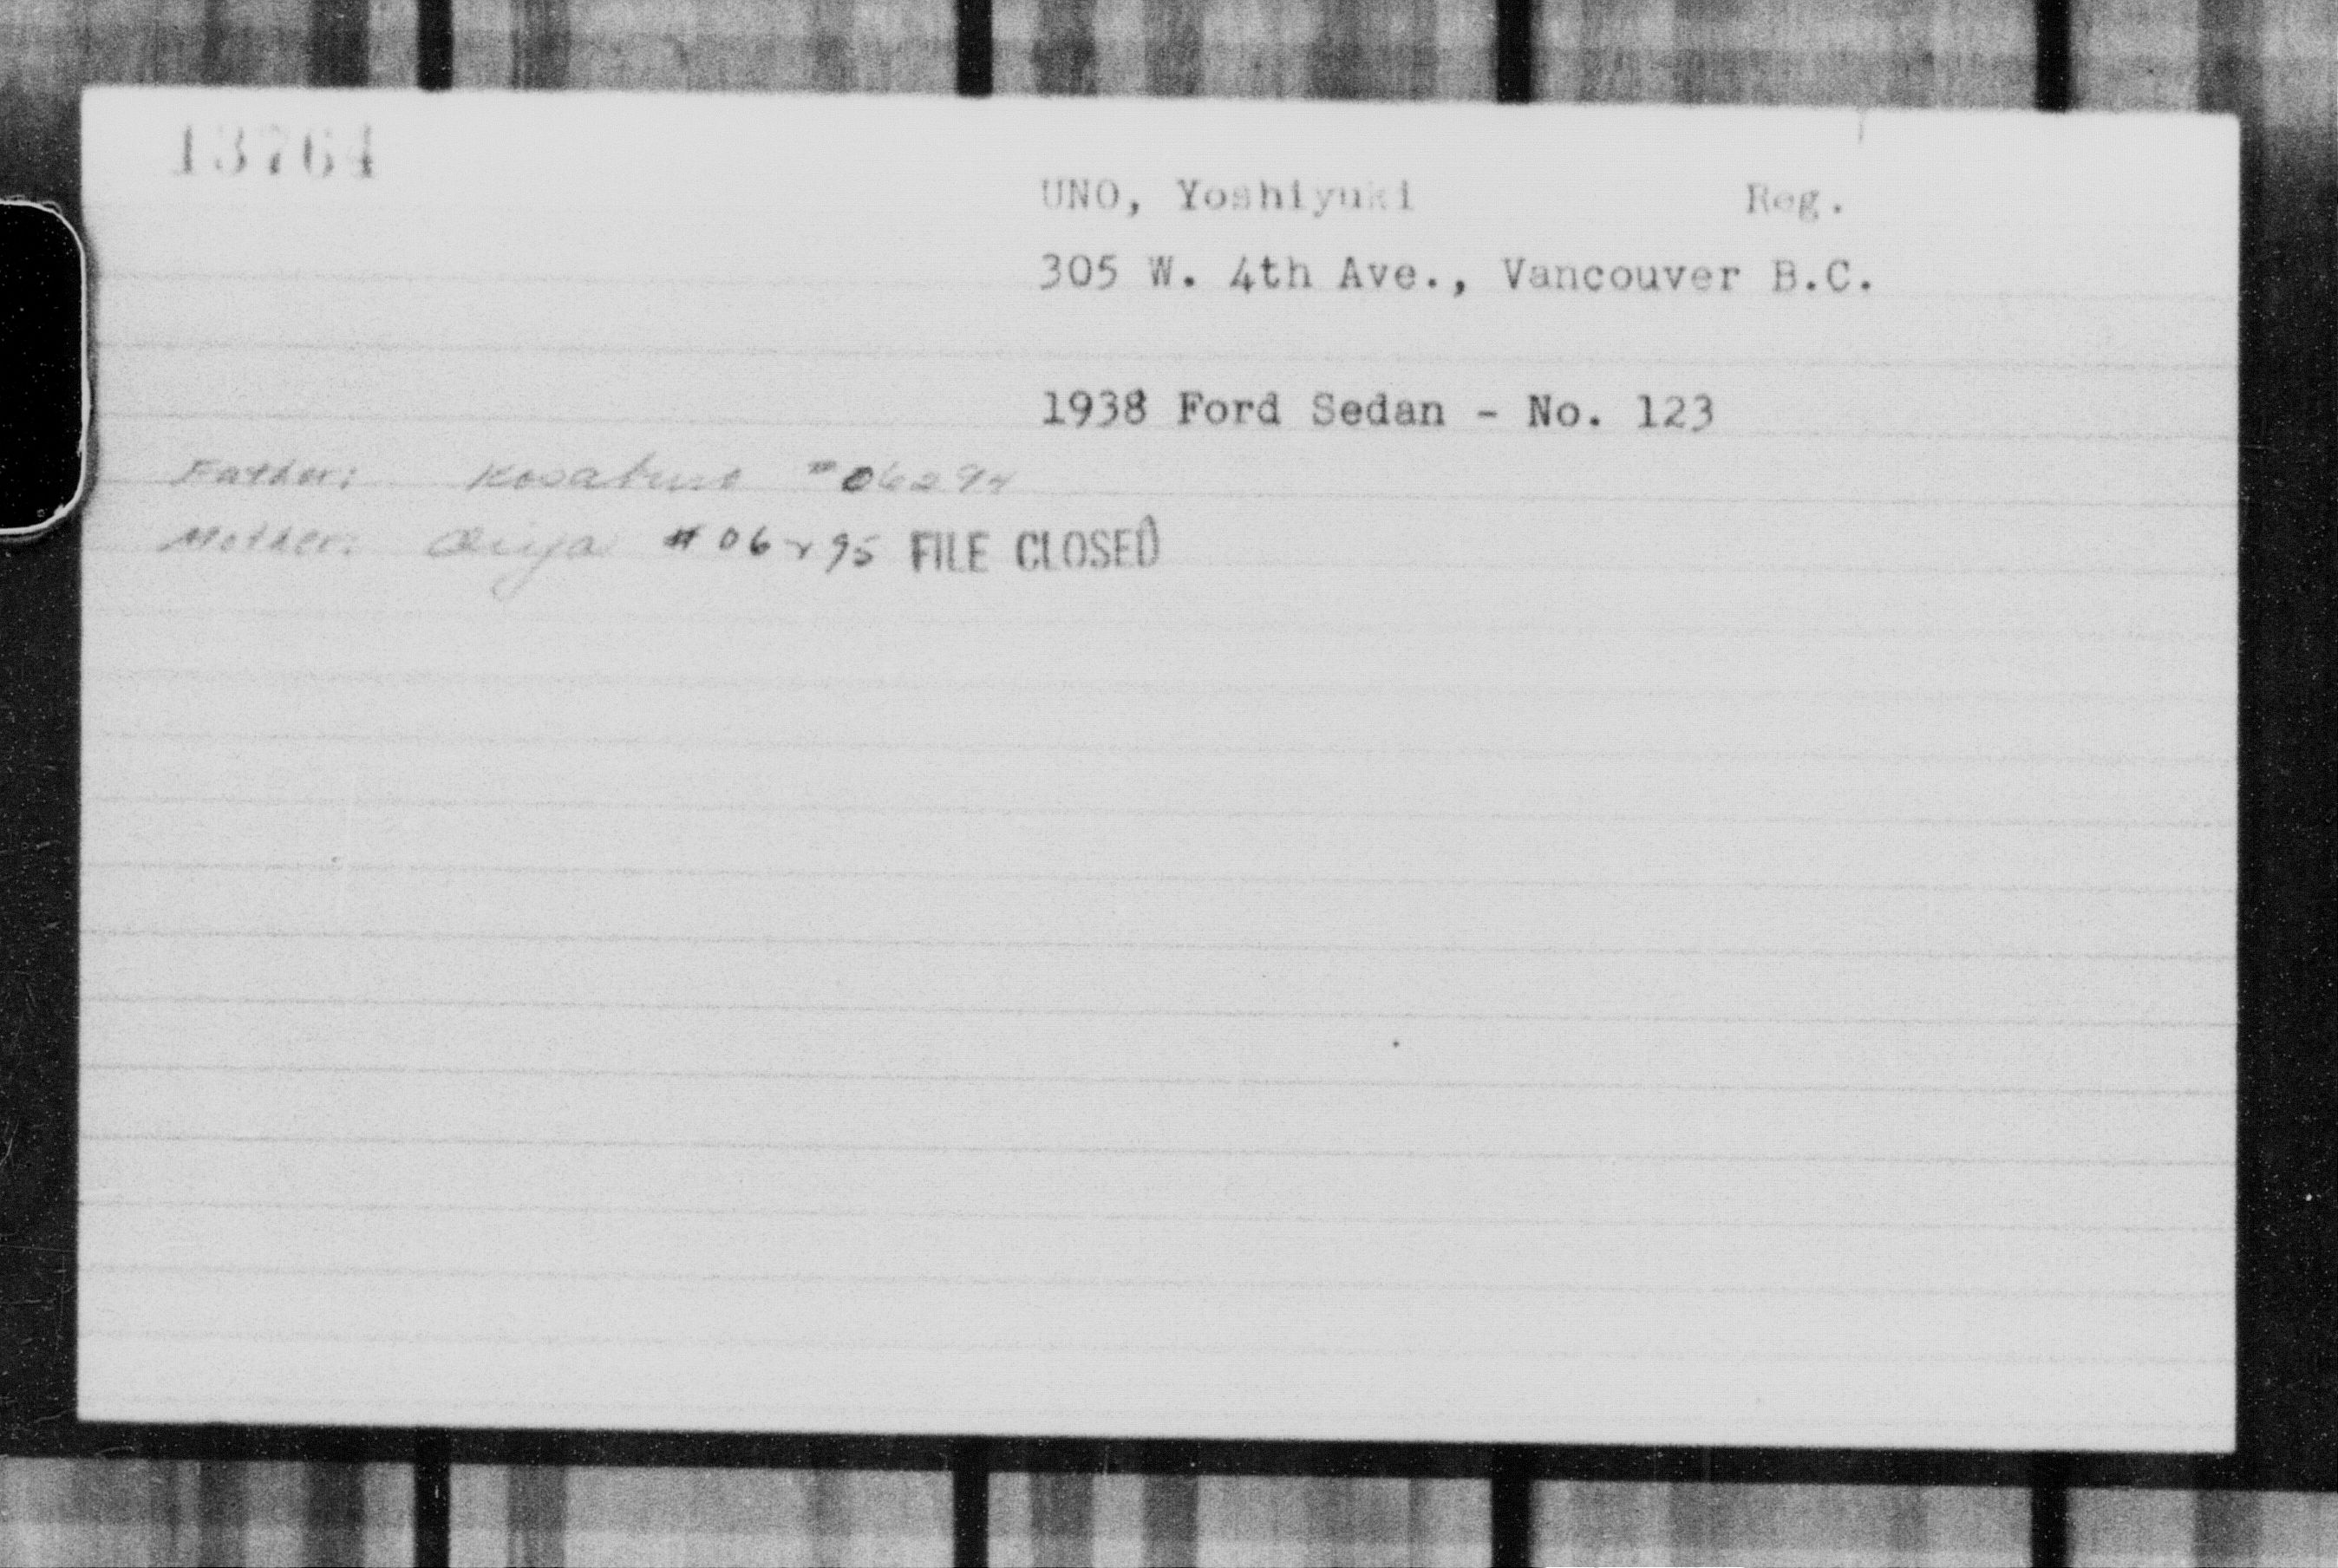 13764
UNO, Yoshiyuki Reg.
305 W. 4th Ave., Vancouver B.C.
1938 Ford Sedan - No. 123
Father: #06294
Mother: #06295 FILE CLOSED